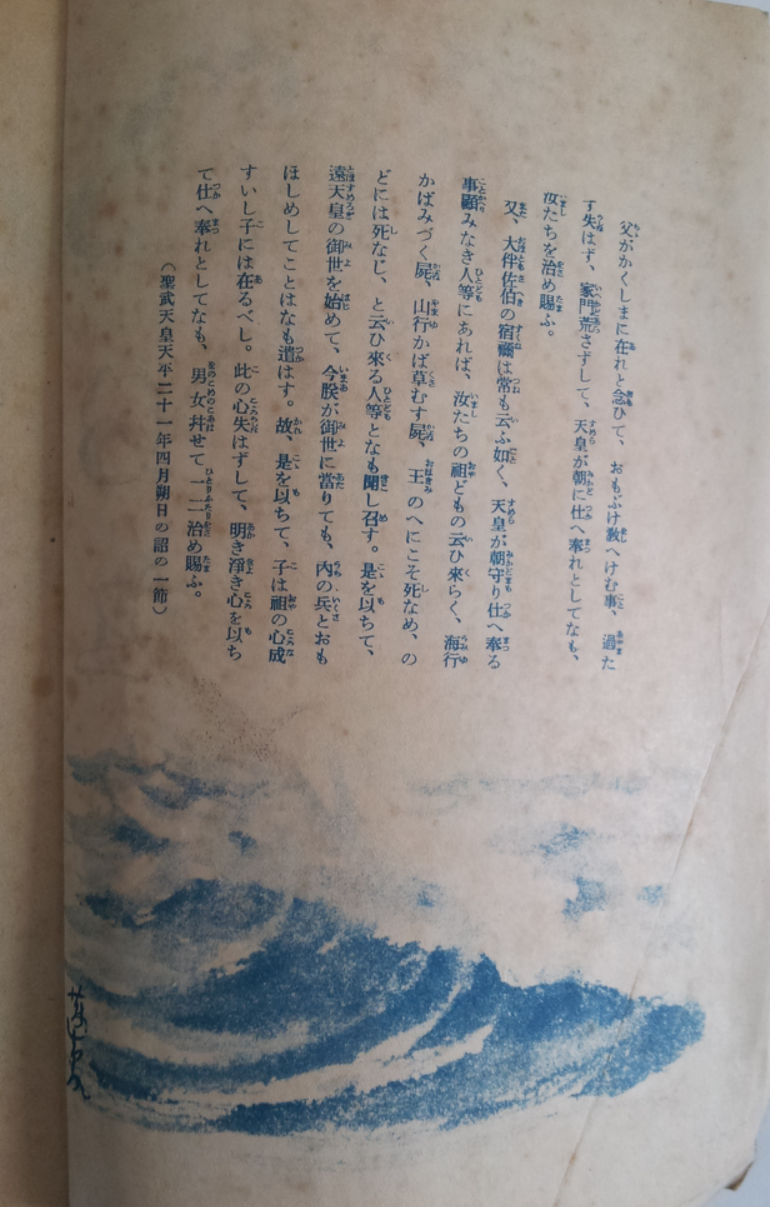 父がかくしまに在れと念ひて、おもぶけ敎へけむ事、過た
ず失はず、家門荒さずして、天皇が朝に仕へ奉れとしてなも、
汝たちを治め賜ふ。
又、大伴佐伯の宿禰は常も云ふ如く、天皇が朝守り仕へ奉る
事顧みなき人等にあれば、汝たちの祖どもの云ひ來らく、海行
かばみづく屍、山行かば草むす屍、王のへにこそ死なめ、の
どには死なじ、と云ひ來る人等となも聞し召す。是を以ちて、
遠天皇の御世を始めて、今朕が御世に當りても、內の兵とおも
ほしめしてことはなも遣はす。故、是を以ちて、子は祖の心成
すいし子には在るべし。此の心失はずして、明き淨き心を以ち
て仕へ奉れとしてなも、男女幷せて一二治め賜ふ。
（聖武天皇天平二十一年四月朔日の詔の一節）